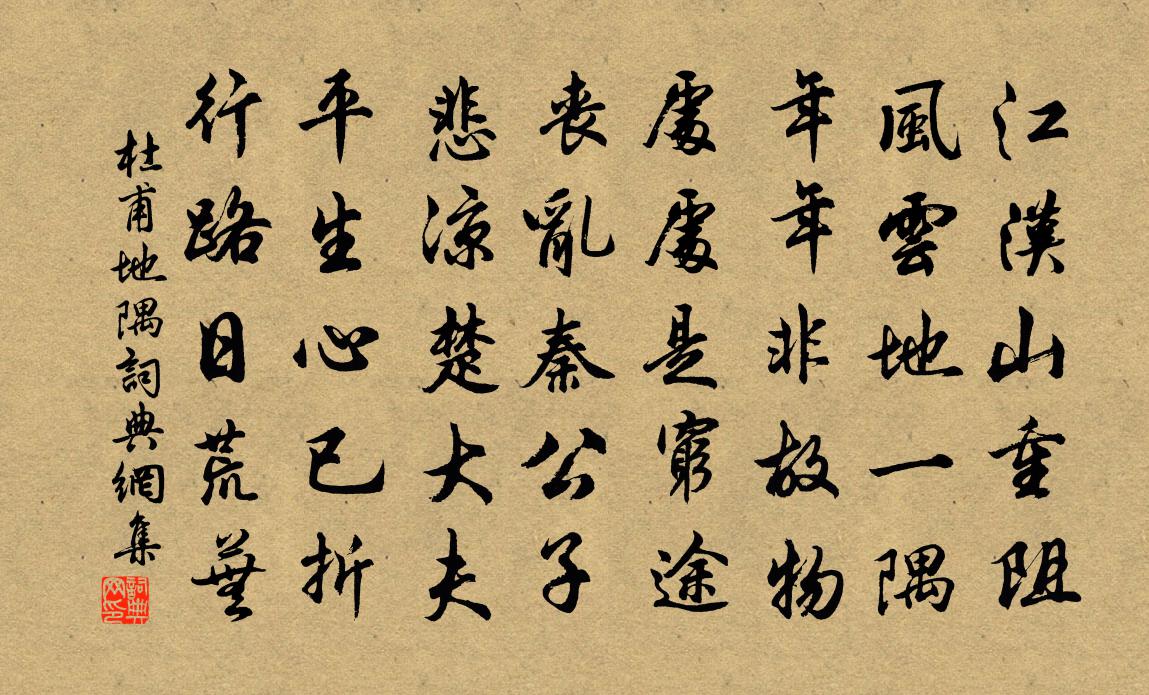 江漢山重阻
風雲地一隅
年年非故物
處處是窮途
喪亂秦公子
悲涼楚大夫
平生心已折
行路日荒蕪
杜甫地隅詞典網集
詞典网印